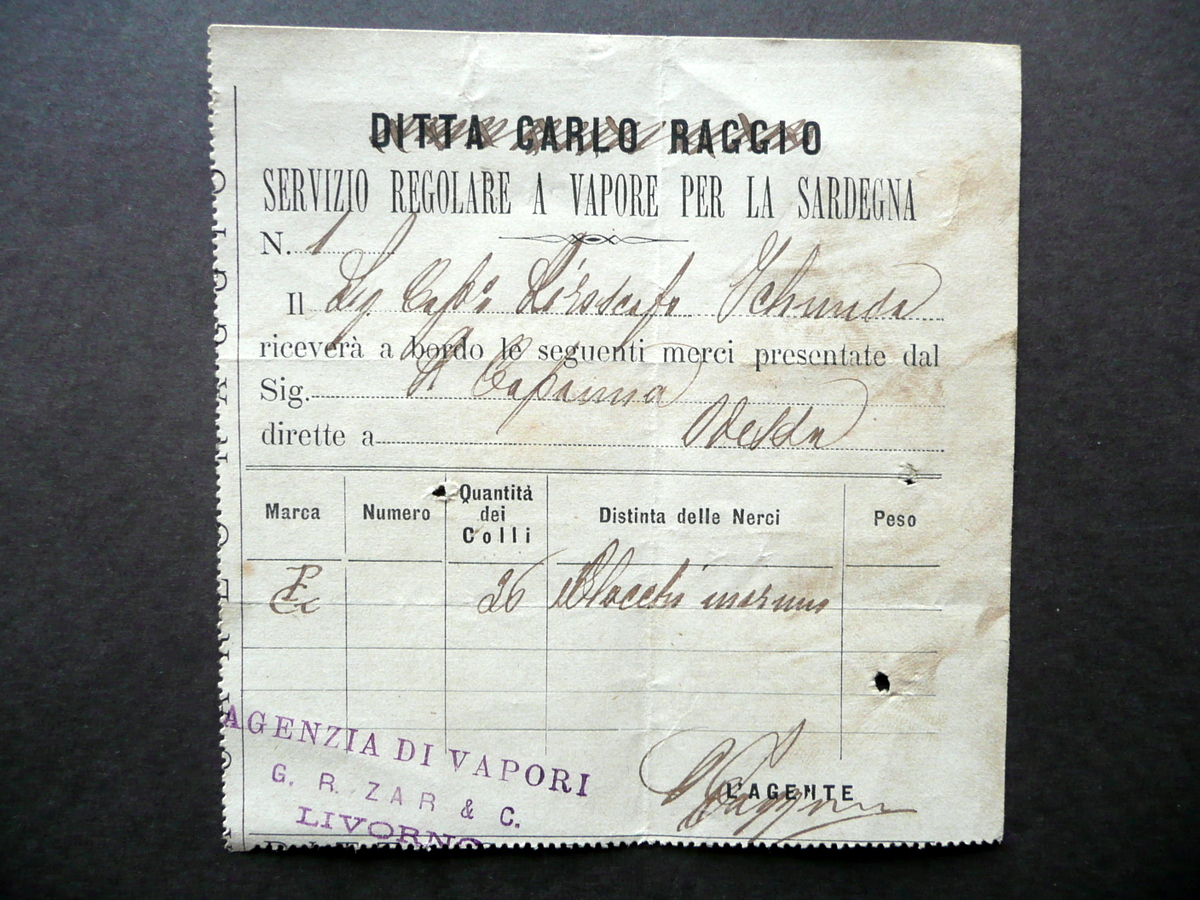 DITTA CARLO RAGGIO
SERVIZIO REGOLARE A VAPORE PER LA SARDEGNA
N. 1
Il Sig. Cap.º Piroscafo
riceverà a bordo le seguenti merci presentate dal
Sig.
dirette a Odessa
Marca Numero Quantità dei Colli Distinta delle Nerci Peso
26 Blocchi marmo
AGENZIA DI VAPORI
G. R. ZAR & C.
LIVORNO
L'AGENTE